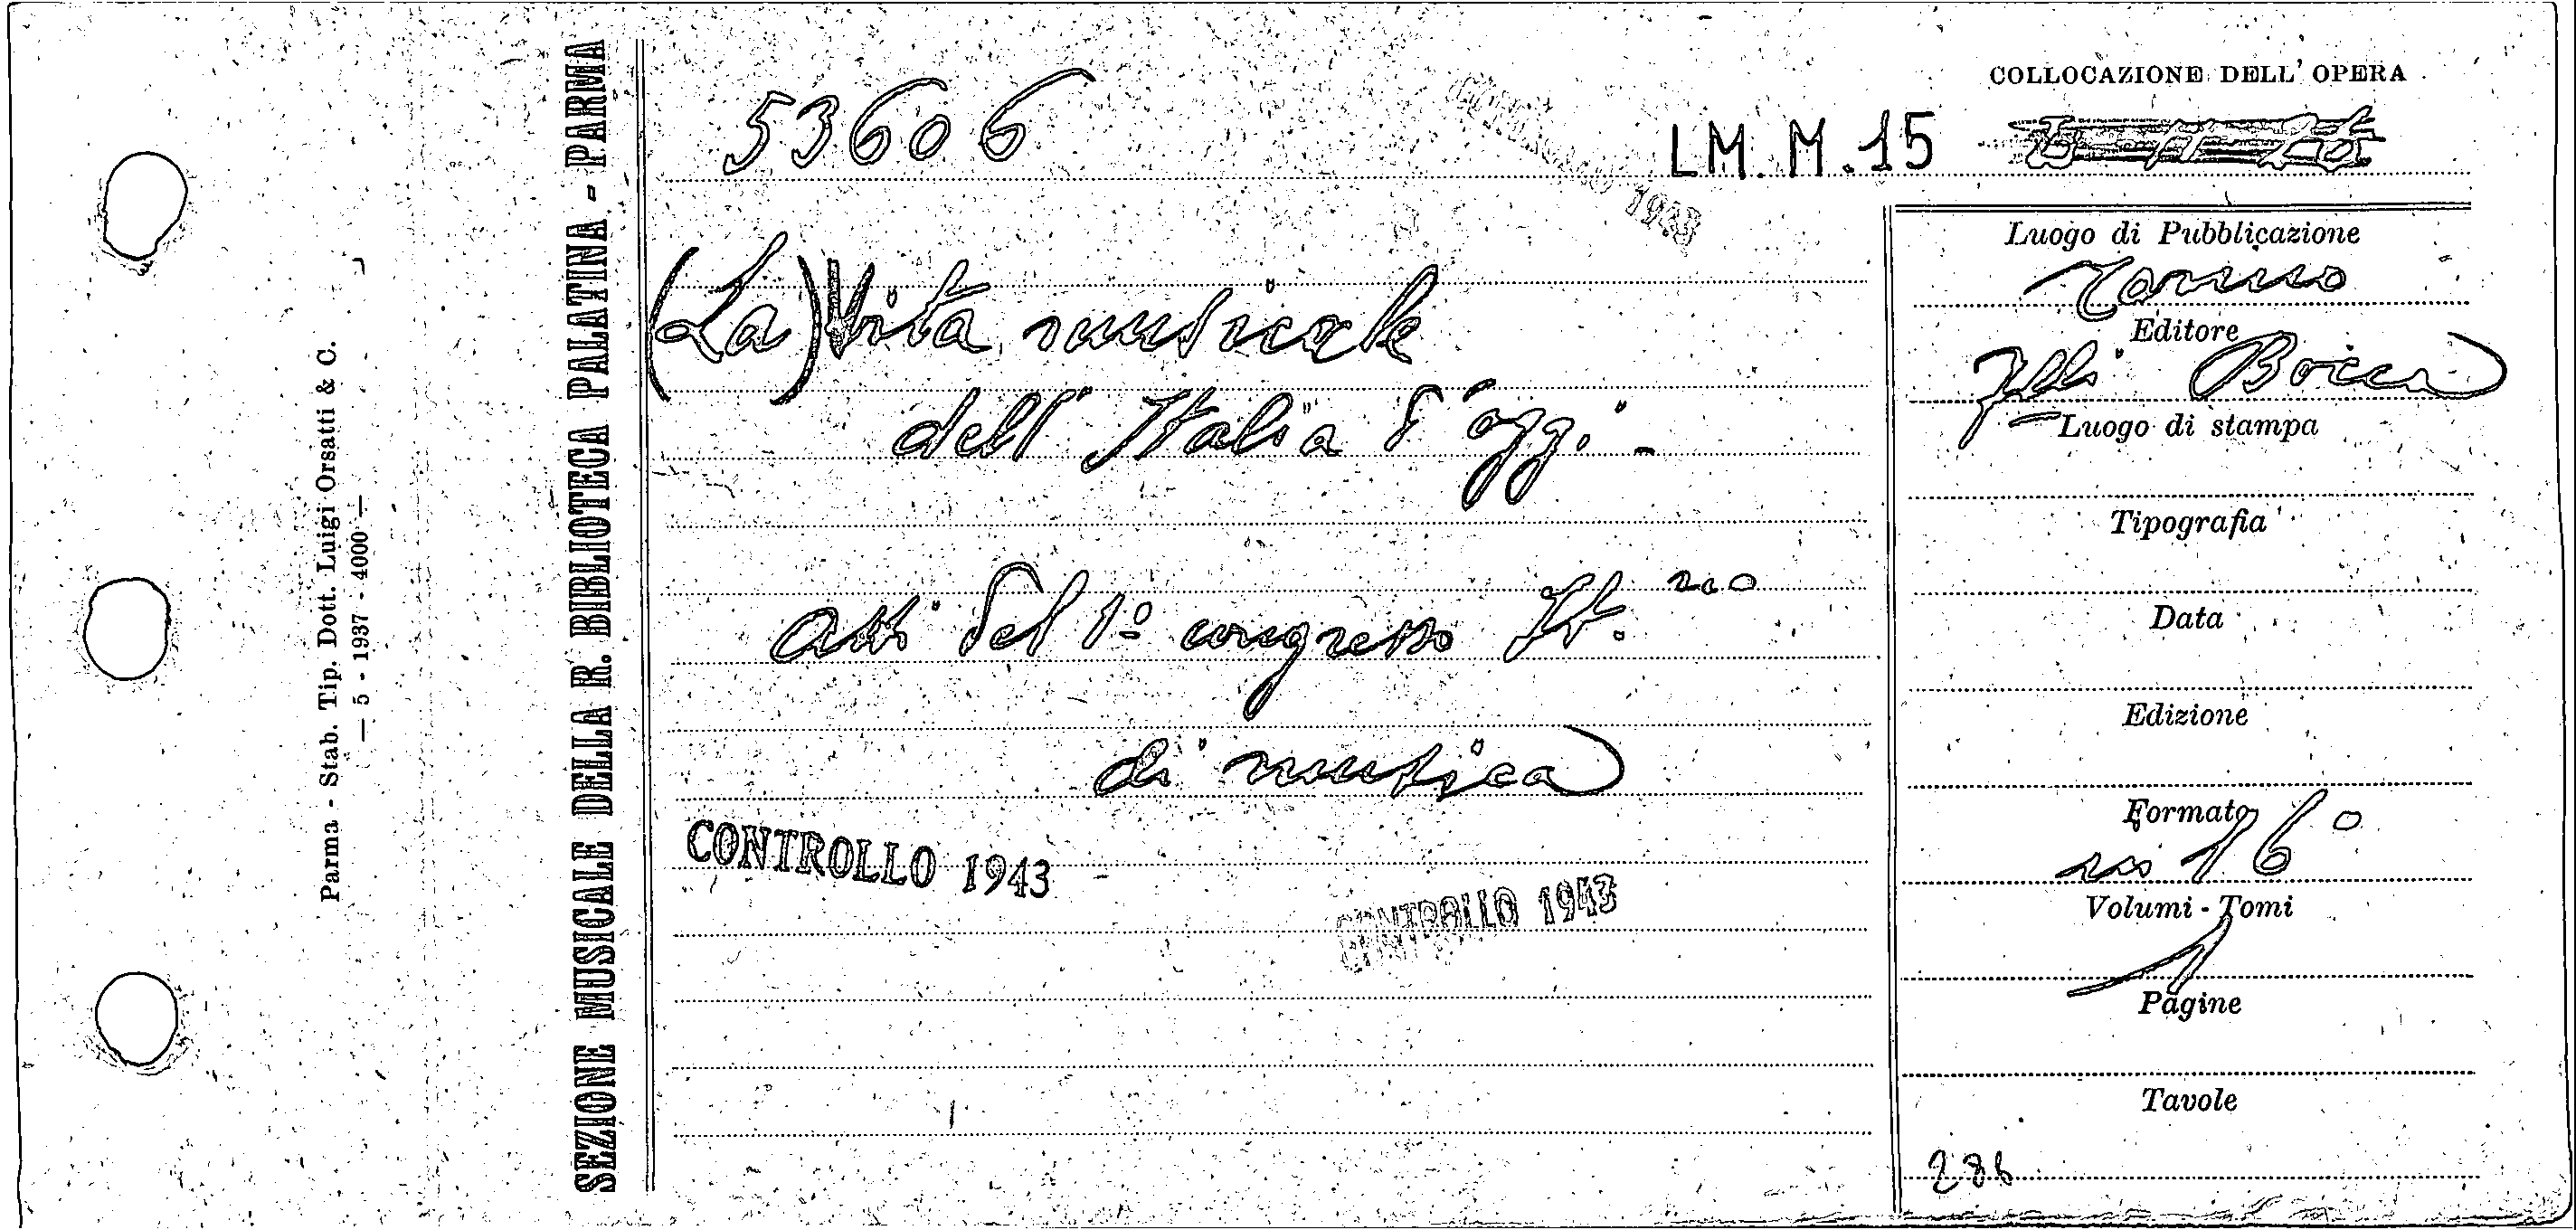 Parma - Stab. Tip. Dott. Luigi Orsatti & C.
— 5 - 1937 - 4000 —
SEZIONE MUSICALE DELLA R. BIBLIOTECA PALATINA - PARMA
COLLOCAZIONE DELL' OPERA
53606
LM. M. 15
1943
(La) Vita musicale
dell' Italia d'oggi. -
Atti del 1º congresso It.no
di musica
CONTROLLO 1943
CONTROLLO 1943
Luogo di Pubblicazione
Torino
Editore
Flli Bocca
Luogo di stampa
Tipografia
Data
Edizione
Formato
in 16º
Volumi - Tomi
1
Pagine
Tavole
286